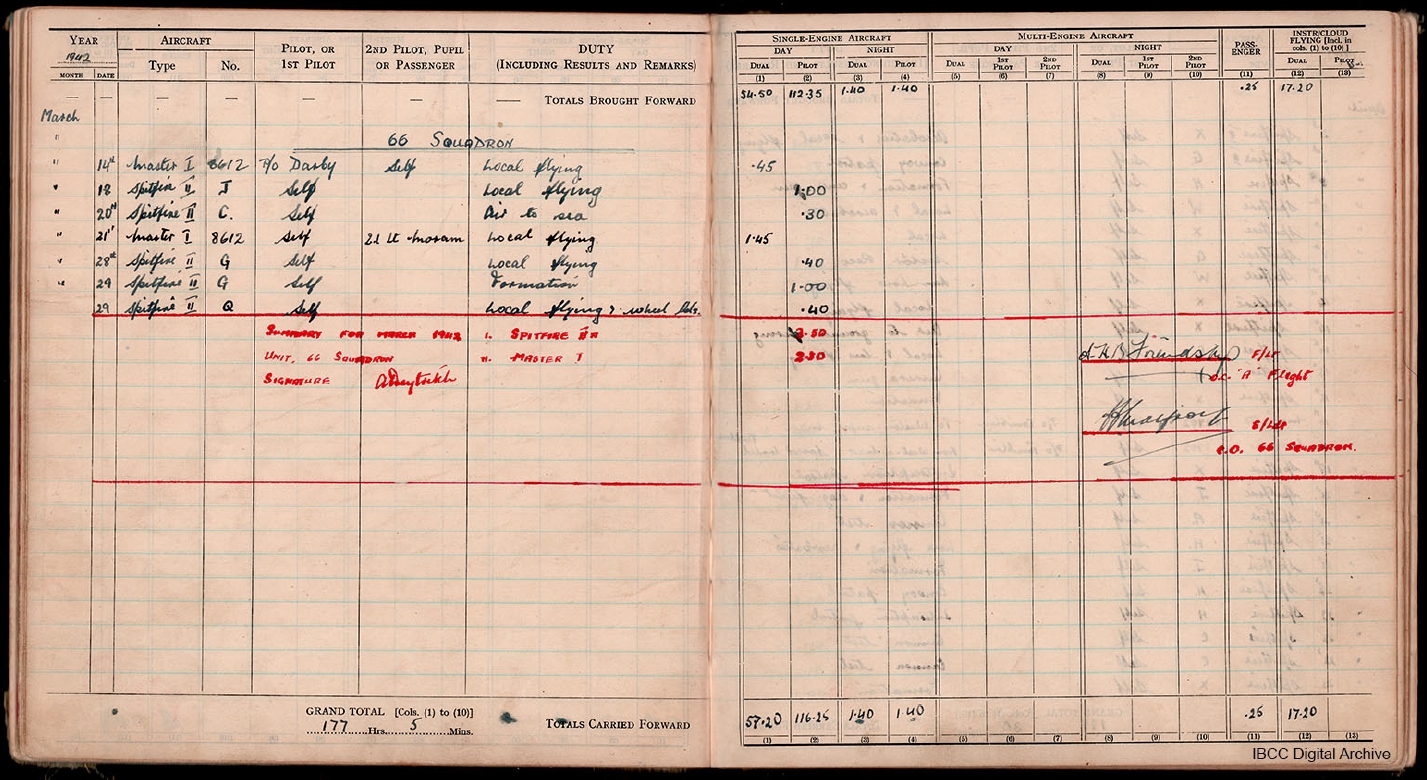 YEAR AIRCRAFT PILOT, OR 2ND PILOT, PUPIL DUTY SINGLE-ENGINE AIRCRAFT MULTI-ENGINE AIRCRAFT PASS- INSTR/CLOUD
1942 1ST PILOT OR PASSENGER (INCLUDING RESULTS AND REMARKS) DAY NIGHT DAY NIGHT ENGER FLYING [Incl. in cols. (1) to (10)]
MONTH DATE Type No. DUAL PILOT DUAL PILOT DUAL 1ST PILOT 2ND PILOT DUAL 1ST PILOT 2ND PILOT DUAL PILOT
(1) (2) (3) (4) (5) (6) (7) (8) (9) (10) (11) (12) (13)
— — — — — — TOTALS BROUGHT FORWARD 54.50 112.35 1.40 1.40 .25 17.20
March
" 66 SQUADRON
" 14th Master I 8612 P/o Darby Self Local flying .45
" 18 Spitfire II J Self Local flying 1.00
" 20th Spitfire II C. Self Air to sea .30
" 21st Master I 8612 Self Local flying 1.45
" 28th Spitfire II G Self Local flying .40
" 29 Spitfire II G Self Formation 1.00
29 Spitfire II Q Self Local flying & wheel .40
SUMMARY FOR MARCH 1942 I. SPITFIRE II 3.50
UNIT, 66 SQUADRON II. MASTER I 2.30 F/Lt
SIGNATURE O.C. "A" Flight
S/Ldr
C.O. 66 SQUADRON.
GRAND TOTAL [Cols. (1) to (10)]
177 Hrs. 5 Mins. TOTALS CARRIED FORWARD 57.20 116.25 1.40 1.40 .25 17.20
(1) (2) (3) (4) (5) (6) (7) (8) (9) (10) (11) (12) (13)
IBCC Digital Archive